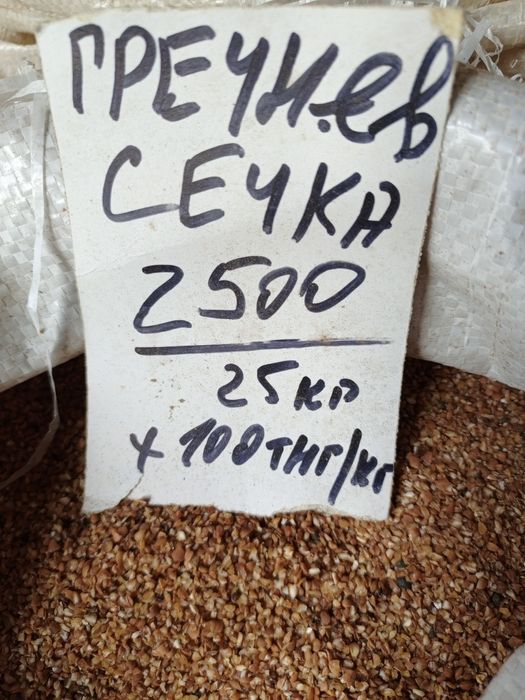 ГРЕЧНЕВ
СЕЧКА
2500
25 кг
х 100 тнг/кг